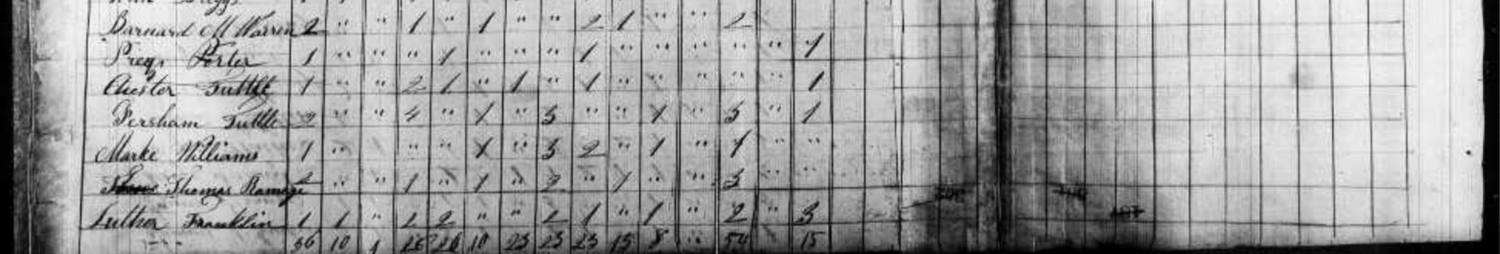 Barnard M Warren 2 " " 1 " 1 " " 2 1 " " 2
Porter 1 " " " 1 " " " 1 " " " " " 1
Chester Tuttle 1 " " 2 1 " 1 " 1 " " " " " 1
Persham Tuttle 2 " " 4 " 1 " 3 " " 1 " 3 " 1
Marke Williams 1 " " " 1 " 3 2 " 1 " 1 " "
Thomas Ramage 2 " " 1 " 1 " 2 " 1 " " 3
Luthor Franklin 1 1 " 1 2 " " 1 1 " 1 " 2 " 3
56 10 1 26 26 10 23 23 23 15 8 " 54 15